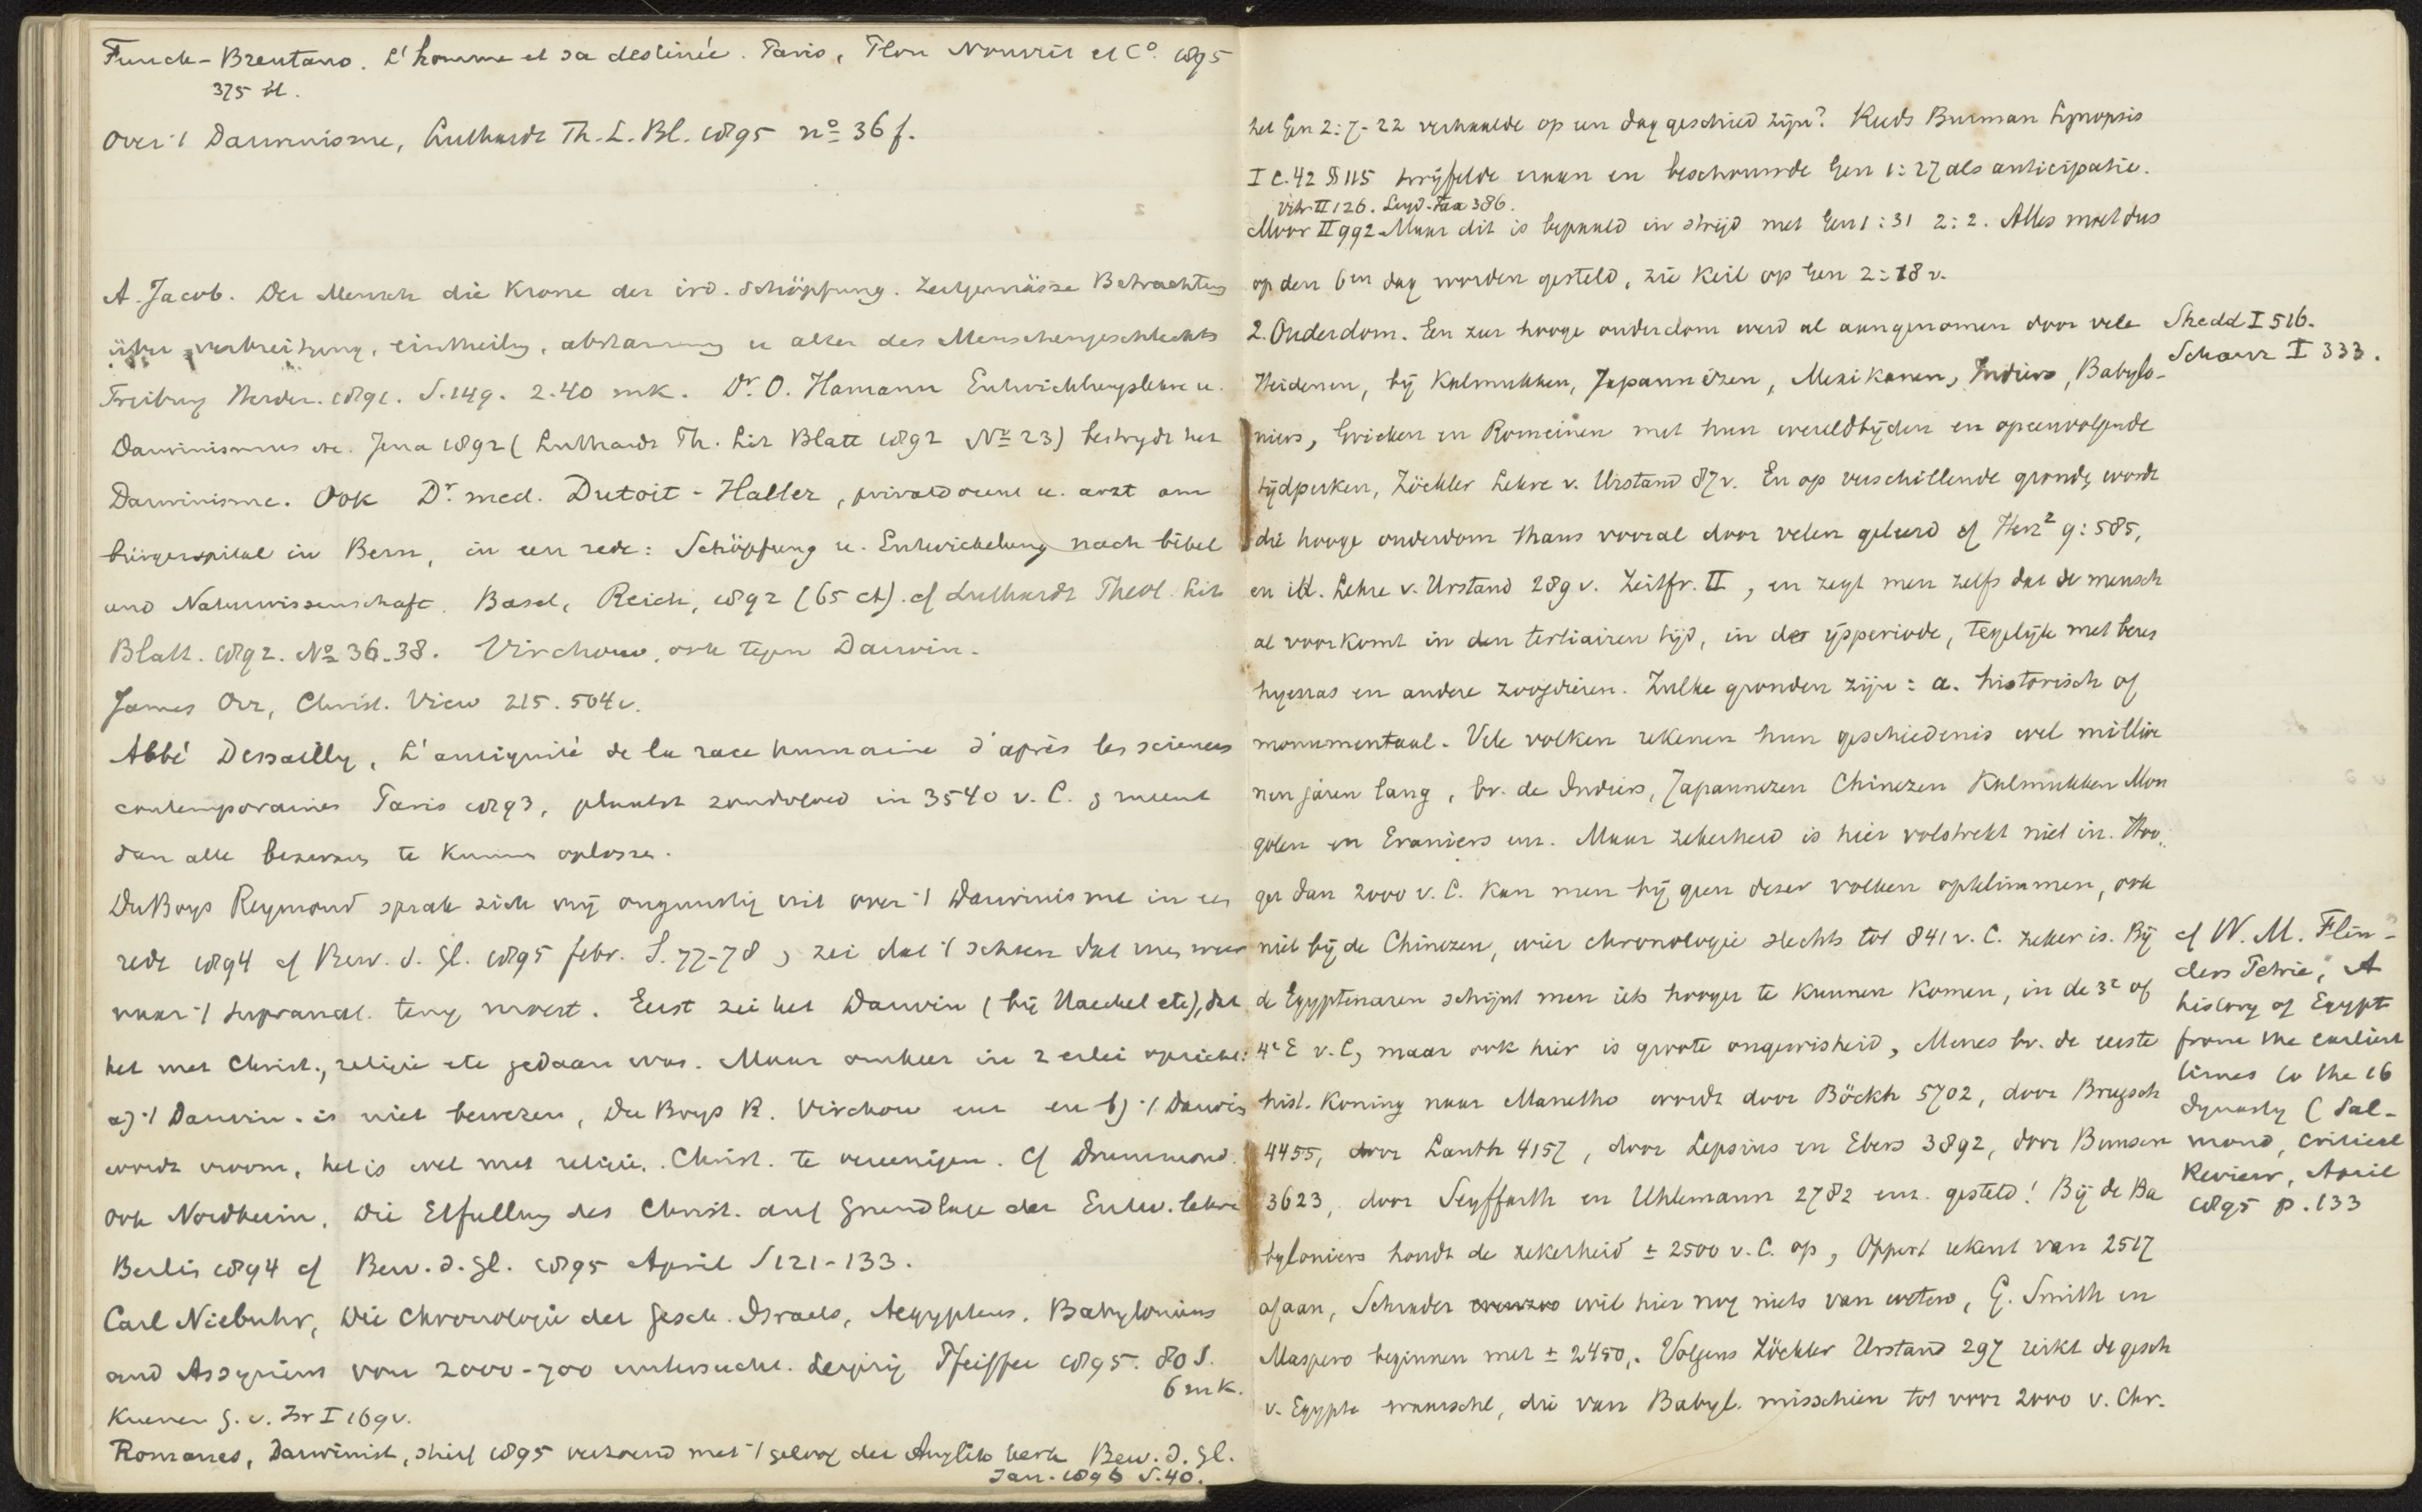 Funck-Brentano. L'homme et sa destinée. Paris, Plon Nourrit et C° 1895
375 bl.
Over 't Darwinisme, Luthardt Th. L. Bl. 1895 n° 36 f.
A. Jacob. Der Mensch die Krone der ird. Schöpfung. Zeitgemässe Betrachtung
über verbreitung, eintheilg, abstammung u alter des Menschengeschlechts
Freiburg Herder. 1891. S. 149. 2.40 mk. Dr. O. Hamann Entwicklungslehre u.
Darwinismus etc. Jena 1892 (Luthardt Th. Lit Blatt 1892 N° 23) bestrijdt het
Darwinisme. Ook Dr. med. Dutoit-Haller, privatdocent u. arzt am
bürgerspital in Bern, in een rede: Schöpfung u. Entwickelung nach bibel
und Naturwissenschaft. Basel, Reich, 1892 (65 ct). cf Luthardt Theol. Lit
Blatt. 1892. N° 36-38. Virchow, ook tegen Darwin.
James Orr, Christ. View 215. 504v.
Abbé Dessailly, L'antiquité de la race humaine d'après les sciences
contemporaines Paris 1893, plaatst zondvloed in 3540 v. C. & meent
dan alle bezwaren te kunnen oplossen.
DuBoys Reymond sprak zich vrij ongunstig uit over 't Darwinisme in een
rede 1894 cf Bew. d. Gl. 1895 febr. S. 77-78, zei dat 't scheen dat men weer
naar 't supranat. terug moest. Eerst zei het Darwin (bij Haeckel etc), dat
het met Christ., religie etc gedaan was. Maar omkeer in 2 erlei opzicht:
a) 't Darwin. is niet bewezen, Du Boys R. Virchow enz en b) 't Darwin
wordt vroom, het is wel met religie, Christ. te vereenigen. Cf Drummond.
Ook Nordheim, Die Erfüllung des Christ. auf Grundlage der Entw. lehre
Berlin 1894 cf Bew. d. Gl. 1895 April S 121-133.
Carl Niebuhr, Die Chronologie der Gesch. Israels, Aegyptens, Babyloniens
und Assyriens von 2000-700 untersucht. Leipzig Pfeiffer 1895. 80 S.
6 mk.
Kuenen G. v. Isr I 169v.
Romanes, Darwinist, stierf 1895 verzoend met 't geloof der Anglik kerk Bew. d. Gl.
Jan. 1896 S. 40.
het Gen 2:7-22 verhaalde op een dag geschied zijn? Reeds Burman Synopsis
I c. 42 § 115 twijfelde eraan en beschouwde Gen 1:27 als anticipatie.
Vitr. II 126. Leyd. Faa 386.
Moor II 992 Maar dit is bepaald in strijd met Gen 1:31 2:2. Alles moet dus
op den 6en dag worden gesteld, zie Keil op Gen 2:18 v.
2. Ouderdom. Een zeer hooge ouderdom werd al aangenomen door vele
Heidenen, bij Kalmukken, Japannézen, Mexikanen, Indiers, Babylo-
Shedd I 516.
Schanz I 333.
niers, Grieken en Romeinen met hun wereldtijden en opeenvolgende
tijdperken, Zöckler Lehre v. Urstand 87 v. En op verschillende gronde wordt
die hooge ouderdom thans vooral door velen geleerd cf Herz² 9:585,
en id. Lehre v. Urstand 289 v. Zeitfr. II, en zegt men zelfs dat de mensch
al voorkomt in den tertiairen tijd, in de ijsperiode, tegelijk met beren
hyenas en andere zoogdieren. Zulke gronden zijn: a. historisch of
monumentaal. Vele volken rekenen hun geschiedenis wel millioe
nen jaren lang, bv. de Indiers, Japannezen Chinezen Kalmukken Mon
golen en Eraniers enz. Maar zekerheid is hier volstrekt niet in. Hoo-
ger dan 2000 v. C. kan men bij geen dezer volken opklimmen, ook
niet bij de Chinezen, wier chronologie slechts tot 841 v. C. zeker is. Bij
de Egyptenaren schijnt men iets hooger te kunnen komen, in de 3e of
4e E v. C, maar ook hier is groote ongewisheid, Menes bv. de eerste
hist. Koning naar Manetho wordt door Böckh 5702, door Brugsch
4455, door Lauth 4157, door Lepsius en Ebers 3892, door Bunsen
3623, door Seyffarth en Uhlemann 2782 enz. gesteld! Bij de Ba
cf W. M. Flin-
ders Petrie, A
history of Egypt
from the earliest
times to the 16
dynasty (Sal-
mond, Critical
Review, April
1895 p. 133
byloniers houdt de zekerheid ± 2500 v. C. op, Oppert rekent van 2517
afaan, Schrader wil hier nog niets van weten, G. Smith en
Maspero beginnen met ± 2450. Volgens Zöckler Urstand 297 reikt de gesch
v. Egypte waarschl, die van Babyl. misschien tot voor 2000 v. Chr.